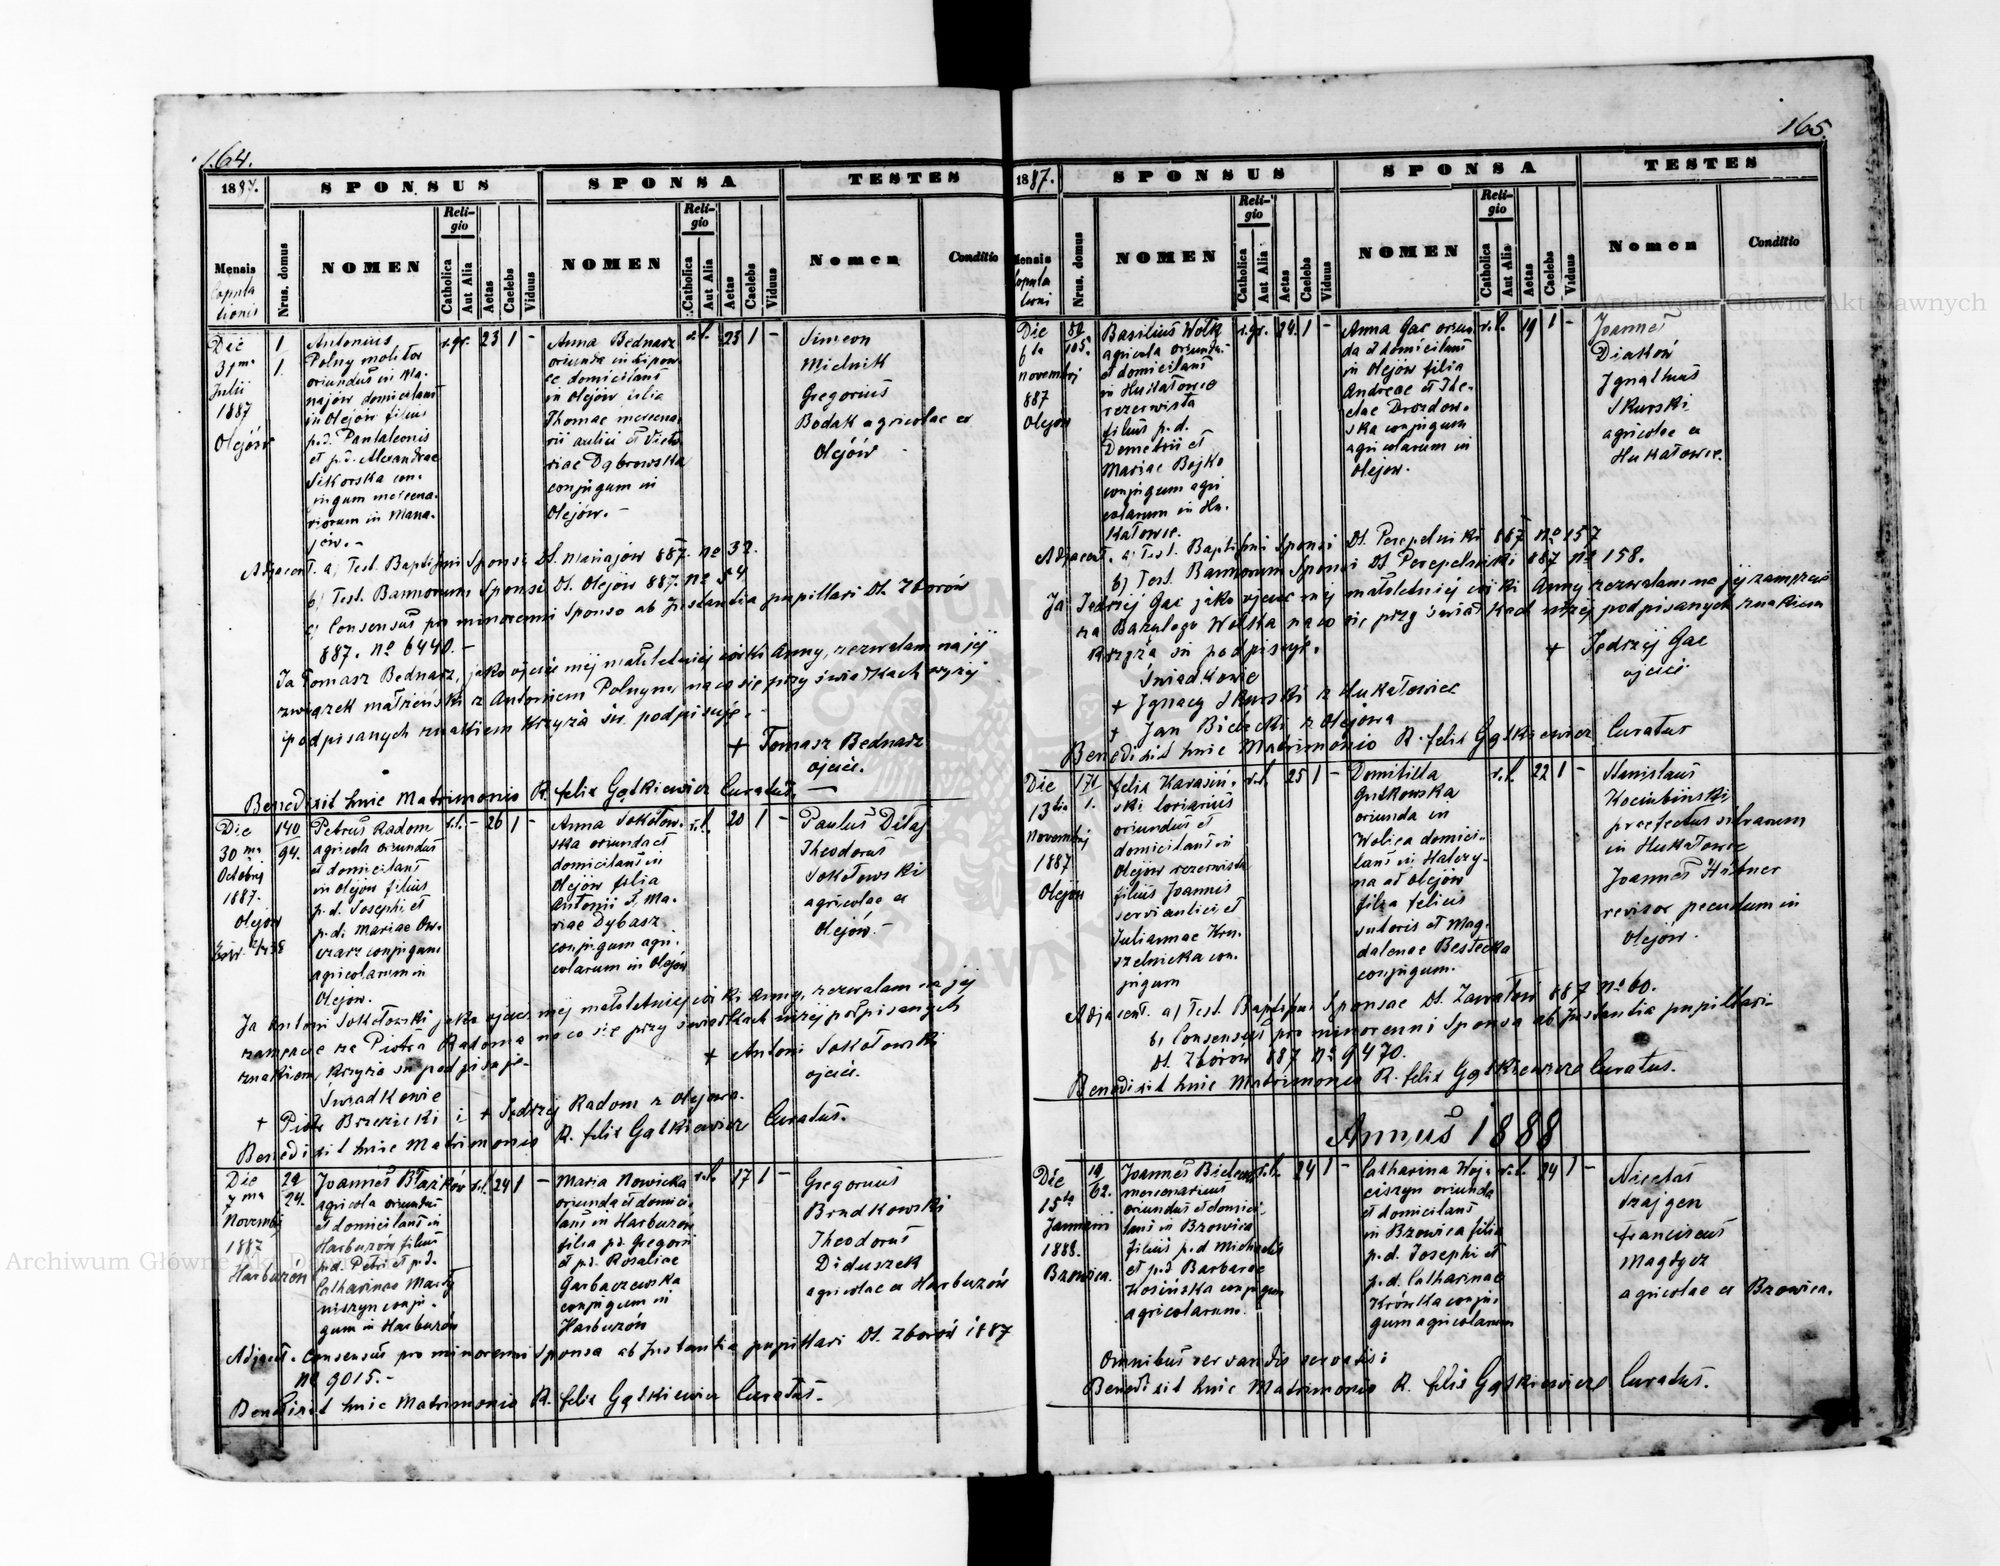 164.
1887.
SPONSUS
SPONSA
TESTES
Mensis
Copula
tionis
Nrus. domus
NOMEN
Religio
Catholica
Aut Alia
Aetas
Caelebs
Viduus
NOMEN
Religio
Catholica
Aut Alia
Aetas
Caelebs
Viduus
Nomen
Conditio
Die
Julii
1887
Olejów
1
1.
Antonius
Polny molitor
oriundus in Ma-
najów domicilans
in Olejów filius
p.d. Pantaleonis
et p.d. Alexandrae
Sikorska con-
jugum mercena-
riorum in Mana-
jów.-
r.gr. 23 1 -
Anna Bednarz
ec domicilans
in Olejów filia
Thomae mercena-
rii aulici et Victo-
riae Dąbrowska
conjugum in
Olejów.-
r.l. 23 1 -
Simeon
Mielnik
Gregorius
Bodak agricolae ex
Olejów
Adjacent. a) Test. Baptismi Sponsi Dt. Manajów 887. No 32.
b) Test. Bannorum Sponsi Dt. Olejów 887. No 54.
c) Consensus pro minorenni Sponso ab Instantia pupillari Dt. Zborów
887. No 6440.-
Ja Tomasz Bednarz, jako ojciec mej małoletniej córki Anny, zezwalam na jej
związek małżeński z Antonim Polnym, na co się przy świadkach wyżej
podpisanych znakiem Krzyża św. podpisuję.-
+ Tomasz Bednarz
ojciec.
Benedixit huic Matrimonio R. Felix Gątkiewicz Curatus.
Die
30ma
Octobris
1887.
Olejów
140
94.
Petrus Radom
agricola oriundus
et domicilans
in Olejów filius
p.d. Josephi et
p.d. Mariae Ow-
czarz conjugum
agricolarum in
Olejow.
r.l. - 26 1 -
Anna Sokołow-
ska oriunda et
domicilans in
Olejów filia
Antonii & Ma-
riae Dybasz
conjugum agri-
colarum in Olejów
r.l. 20 1 -
Paulus Ditaj
Theodorus
Sokołowski
agricolae ex
Olejów.-
Ja Antoni Sokołowski jako ojciec mej małoletniej córki Anny, zezwalam na jej
zamęście za Piotra Radoma na co się przy świadkach niżej podpisanych
znakiem Krzyża św podpisuję.-
+ Antoni Sokołowski
ojciec.
Świadkowie
+ Piotr Brzezicki i + Jędrzej Radom z Olejowa.
Benedixit huic Matrimonio R. Felix Gątkiewicz Curatus.
Die
7ma
Novembris
1887
Harbuzów
29
24.
Joannes Błażków
agricola oriundus
et domicilans in
Harbuzów filius
p.d. Petri et p.d.
Catharinae Marty
niszyn conju-
gum in Harbuzów
r.l. 24 1 -
Maria Nowicka
oriunda et domici-
lans in Harbuzów
filia p.d. Gregorii
et p.d. Rosaliae
Garbaczewska
conjugum in
Harbuzów
r.l. 17 1 -
Gregorius
Brudkowski
Theodorus
Diduszek
agricolae ex Harbuzów
Adjacet. Consensus pro minorenni Sponsa ab Instantia pupillari Dt. Zborów 1887
No 9015.-
Benedixit huic Matrimonio R. Felix Gątkiewicz Curatus.
165.
1887.
SPONSUS
SPONSA
TESTES
Mensis
Copula
tioni
Nrus. domus
NOMEN
Religio
Catholica
Aut Alia
Aetas
Caelebs
Viduus
NOMEN
Religio
Catholica
Aut Alia
Aetas
Caelebs
Viduus
Nomen
Conditio
Die
6ta
Novembris
887
Olejów
105.
Basilius Wołk
agricola oriundus
et domicilans
in Hukałowce
rezerwista
filius p.d.
Demetrii et
Mariae Bojko
conjugum agri
colarum in Hu-
kałowce.
r.gr. 24. 1 -
Anna Gac oriun-
da et domicilans
in Olejów filia
Andreae et The-
clae Drozdow-
ska conjugum
agricolarum in
Olejow.
r.l. 19 1 -
Joannes
Diaków
Ignatius
Skurski
agricolae ex
Hukałowce.
Adjacent. a) Test. Baptismi Sponsi Dt. Perepelniki 887 No 157
b) Test. Bannorum Sponsi Dt Perepelniki 887 No 158.
Ja Jędrzej Gac jako ojciec mej małoletniej córki Anny zezwalam na jej zamęście
za Bazylego Wołka na co się przy świadkach niżej podpisanych znakiem
Krzyża św podpisuję.
+ Jędrzej Gac
ojciec
Świadkowie
+ Ignacy Skurski z Hukałowiec
+ Jan Bielecki z Olejowa
Benedixit huic Matrimonio R. Felix Gątkiewicz Curatus
Die
13tia
Novembris
1887
Olejów
171
1.
Felix Karasiń-
ski loriarius
oriundus et
domicilans in
Olejów rezerwista
filius Joannis
servi aulici, et
Juliannae Kru-
szelnicka con-
jugum
r.l. 25 1 -
Domitilla
Gutkowska
oriunda in
Wolica domici-
lans in Hałczy-
na ad Olejów
filia Felicis
sutoris et Mag-
dalenae Bestecka
conjugum.
r.l. 22 1 -
Stanislaus
Kociubiński,
praefectus silvarum
in Hukałowce
Joannes Hübner
revisor pecudum in
Olejów.
Adjacent. a) Test. Baptismi Sponsae Dt. Zawałów 887 No 60.
b) Consensus pro minorenni Sponsa ab Instantia pupillari
Dt. Zborów 887 No 9470.
Benedixit huic Matrimonio R. Felix Gątkiewicz Curatus.
Annus 1888
Die
15ta
Januarii
1888.
Bzowica.
19
62.
Joannes Bielecki
mercenarius
oriundus et domici-
lans in Bzowica
filius p.d Michaelis
et p.d. Barbarae
Kosińska conjugum
agricolarum.
r.l. 24 1 -
Catharina Woj-
ciszyn oriunda
et domicilans
in Bzowica filia
p.d. Josephi et
p.d. Catharinae
Krówka conju-
gum agricolarum
r.l. 24 1 -
Nicetas
Szajgen
Franciscus
Magdycz
agricolae ex Bzowica.
Omnibus servandis servatis:
Benedixit huic Matrimonio R. Felix Gątkiewicz Curatus.
Archiwum Główne Akt Dawnych
Archiwum Główne Akt Dawnych